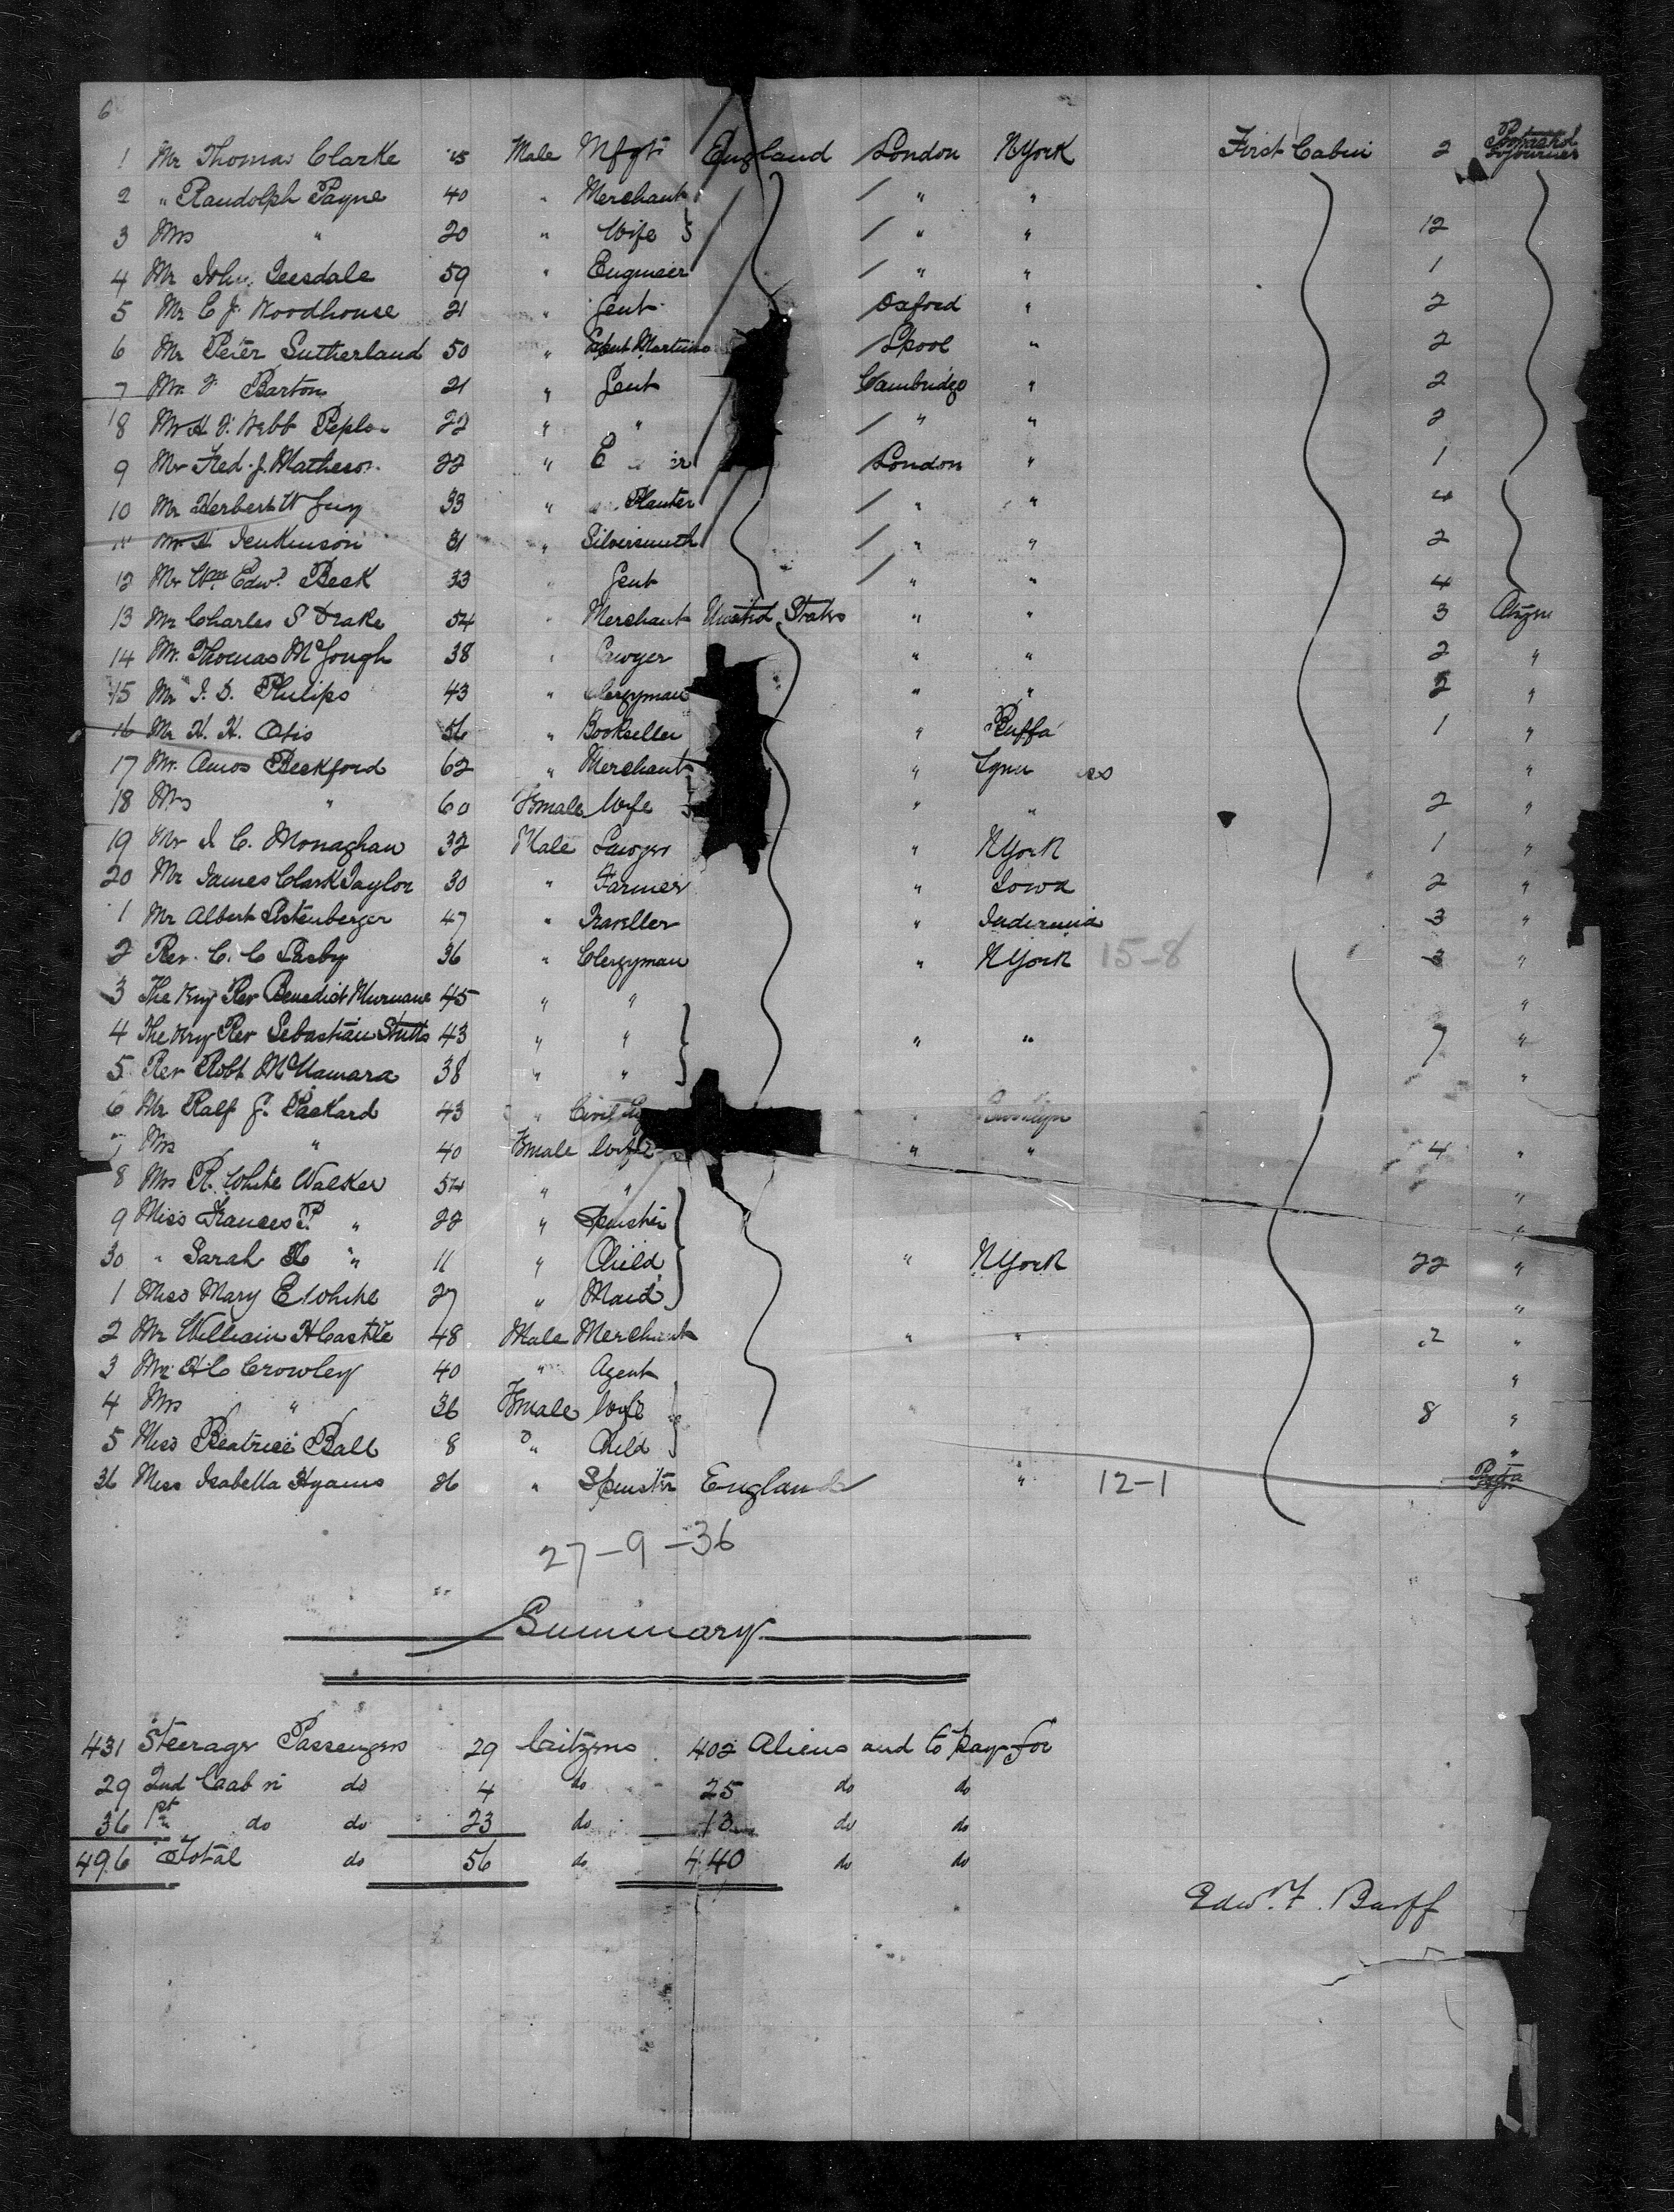 6
1 Mr Thomas Clarke 45 Male Mfgr England London NYork First Cabin 2 Protracted Sojourner
2 " Randolph Payne 40 " Merchant / " "
3 Mrs " 20 " Wife } / " " 12
4 Mr John Teesdale 59 " Engineer / " " 1
5 Mr C J. Woodhouse 21 " Gent / Oxford " 2
6 Mr Peter Sutherland 50 " / Lpool " 2
7 Mr F Barton 21 " Gent Cambridge " 2
8 Mr H F. Webb Peplo 22 " " / " " 2
9 Mr Fred. J. Matheson 22 " E er London " 1
10 Mr Herbert W Guy 33 " Planter / " " 4
11 Mr H Jenkinson 31 " Silversmith / " " 2
12 Mr Wm Edwd. Beck 33 " Gent / " " 4
13 Mr Charles S Drake 54 " Merchant United States " " 3
14 Mr. Thomas McGough 38 " Lawyer " " 2 "
15 Mr J. D. Philips 43 " Clergyman " " 2 "
16 Mr H. H. Otis 56 " Bookseller " Buffa 1 "
17 Mr. Amos Beckford 62 " Merchant " Lynn "
18 Mrs " 60 Female Wife } " " 2 "
19 Mr J. C. Monaghan 32 Male Lawyer " NYork 1 "
20 Mr James Clark Taylor 30 " Farmer " Iowa 2 "
1 Mr Albert 47 " Traveller " 3 "
2 Rev. C. C Lasby 36 " Clergyman " NYork 15-8 3 "
3 The Very Rev Benedict Murnane 45 " " "
4 The Very Rev Sebastian Stutts 43 " " } " " 7 "
5 Rev Robt McNamara 38 " " "
6 Mr Ralf G. Packard 43 " Civil " Brooklyn
7 Mrs " 40 Female Wife " " 4 "
8 Mrs R. White Walker 54 " " "
9 Miss Frances P. " 22 " Spinster } "
30 " Sarah H " 11 " Child } " NYork 22 "
1 Miss Mary E White 27 " Maid } "
2 Mr William H Castle 48 Male Merchant " " 2 "
3 Mr H C Crowley 40 " Agent "
4 Mrs " 36 Female Wife } 8 "
5 Miss Beatrice Ball 8 " Child } "
36 Miss Isabella Hyams 26 " Spinster England " 12-1
27-9-36
Summary
431 Steerage Passengers 29 Citizens 402 Aliens and to pay for
29 2nd Caabin do 4 do 25 do do
36 1st do do 23 do 13 do do
496 Total do 56 do 440 do do
Edw. F. Barff